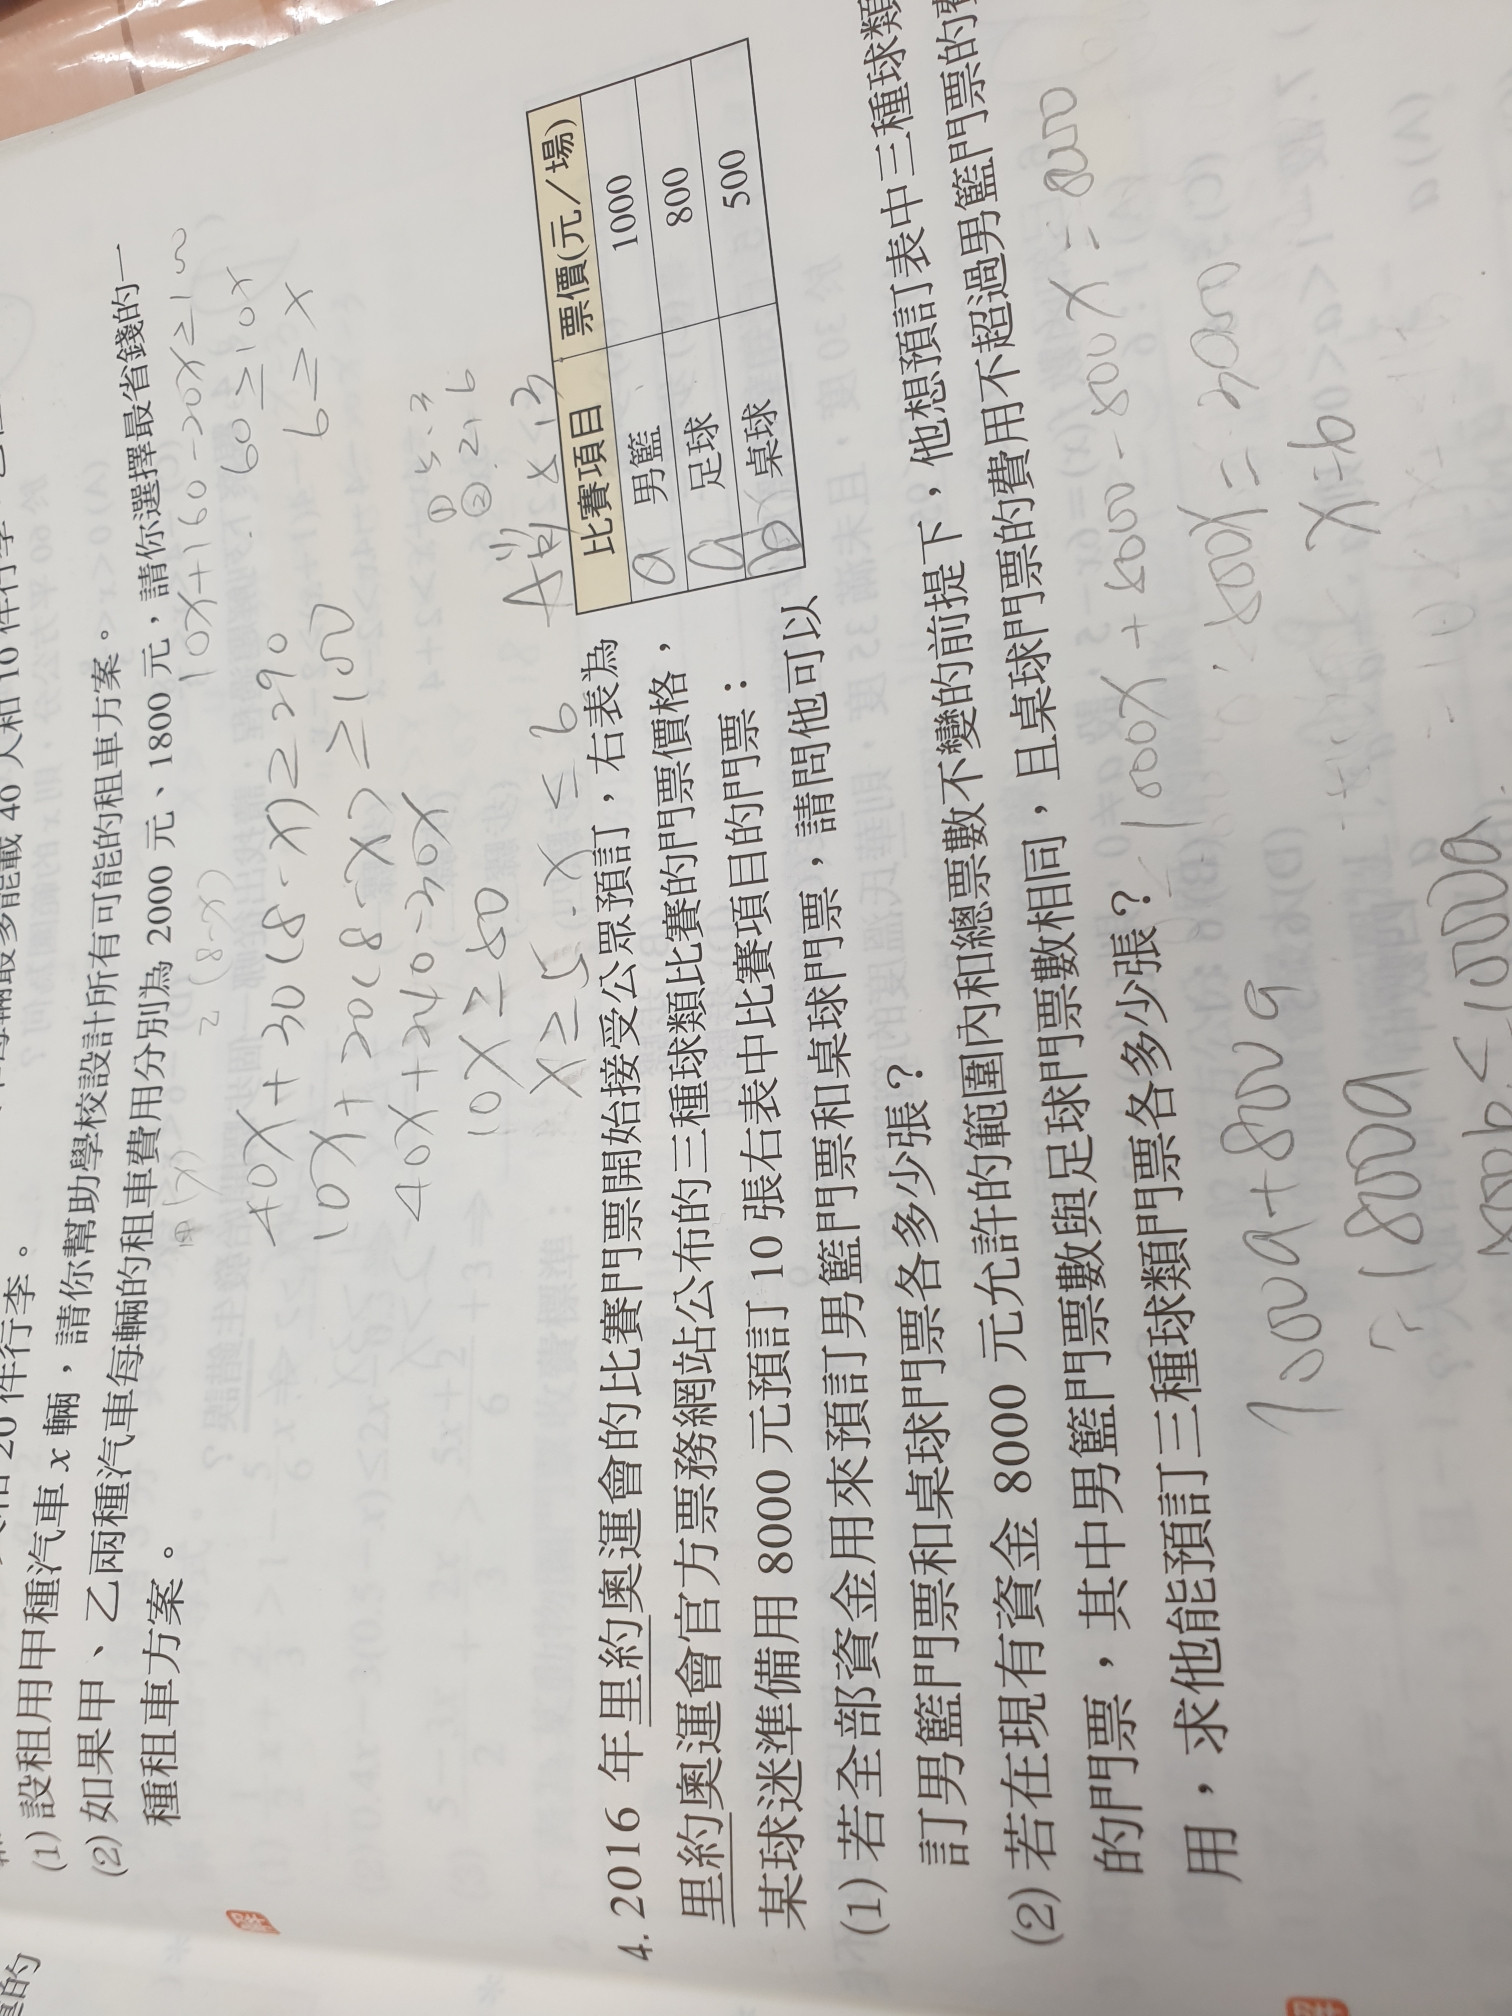 20 件行李。
(1) 設租用甲種汽車 x 輛，請你幫助學校設計所有可能的租車方案。
(2) 如果甲、乙兩種汽車每輛的租車費用分別為 2000 元、1800 元，請你選擇最省錢的一
種租車方案。
乙 (8-x)
甲 (x)
40x+30(8-x)≥290
10x+20(8-x)≥100
40x+240-30x
10x≥50
x≥5. x≤6
10x+160-20x≥100
60≥10x
6≥x
① 5, 3
② 2, 6
比賽項目 票價(元／場)
男籃 1000
足球 800
桌球 500
a
a
b
4. 2016 年里約奧運會的比賽門票開始接受公眾預訂，右表為
里約奧運會官方票務網站公布的三種球類比賽的門票價格，
某球迷準備用 8000 元預訂 10 張右表中比賽項目的門票：
(1) 若全部資金用來預訂男籃門票和桌球門票，請問他可以
訂男籃門票和桌球門票各多少張？
(2) 若在現有資金 8000 元允許的範圍內和總票數不變的前提下，他想預訂表中三種球類
的門票，其中男籃門票數與足球門票數相同，且桌球門票的費用不超過男籃門票的費
用，求他能預訂三種球類門票各多少張？
x=6
1000a+800a
1800a